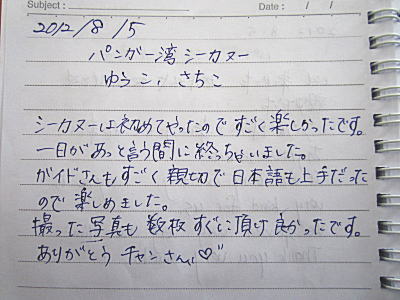 Subject :
Date :
2012/8/5
パンガー湾シーカヌー
ゆうこ, さちこ
シーカヌーは初めてやったので すごく楽しかったです。
一日があっと言う間に終っちゃいました。
ガイドさんもすごく親切で日本語も上手だった
ので楽しめました。
撮った写真も数枚すぐに頂け良かったです。
ありがとう チャンさん♡